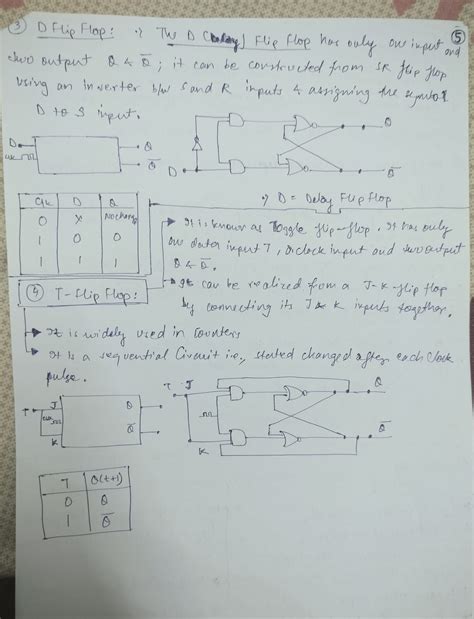 ③ D Flip Flop: ⑤
The D (Delay) Flip Flop has only one input and
two output Q & Q̅; it can be constructed from SR flip flop
using an inverter b/w S and R inputs & assigning the symbol
D to S input.
D Q Q
CLK Q̅ D Q̅
D = Delay Flip Flop
CLK D Q
0 X No change
1 0 0
1 1 1
It is known as Toggle flip-flop. It has only
one data input T, a clock input and two output
Q & Q̅.
④ T-Flip Flop:
It can be realized from a J-K-flip flop
by connecting its J & K inputs together.
It is widely used in counters
It is a sequential Circuit i.e., stated changed after each clock
pulse.
T J Q T J Q
CLK
K Q̅ K Q̅
T Q(t+1)
0 Q
1 Q̅